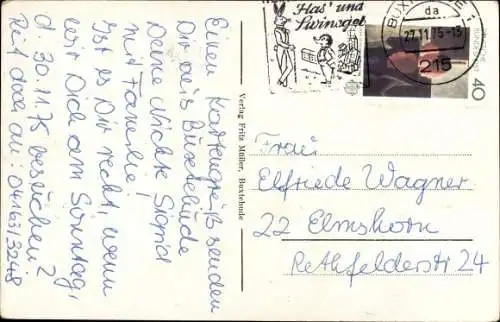 Einen Kartengruß senden
Dir aus Buxtehude
Deine Nichte Sigrid
mit Familie!
Ist es Dir recht, wenn
wir Dich am Sonntag,
d. 30.11.75 besuchen?
Ruf doch an: 04163/3248
Verlag Fritz Müller, Buxtehude
Has' und
Swinegel
BUXTEHUDE 1
da
27.11.75-13
215
40
Frau
Elfriede Wagner
22 Elmshorn
Rethfelderstr. 24